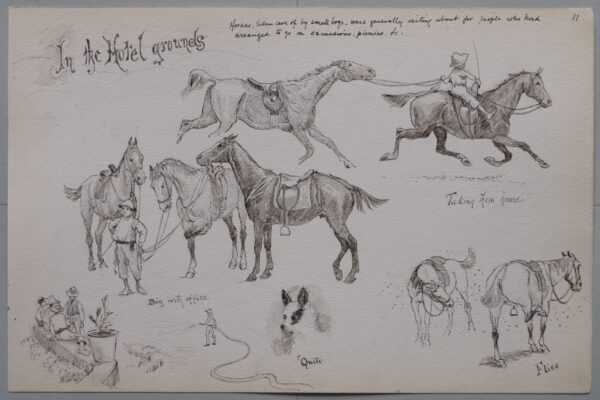 In the Hotel grounds
Horses, taken care of by small boys, were generally waiting about for people who had
arranged to go on excursions, picnics. &c.
11
Taking them home
Boy with office
'Quito'
Flies